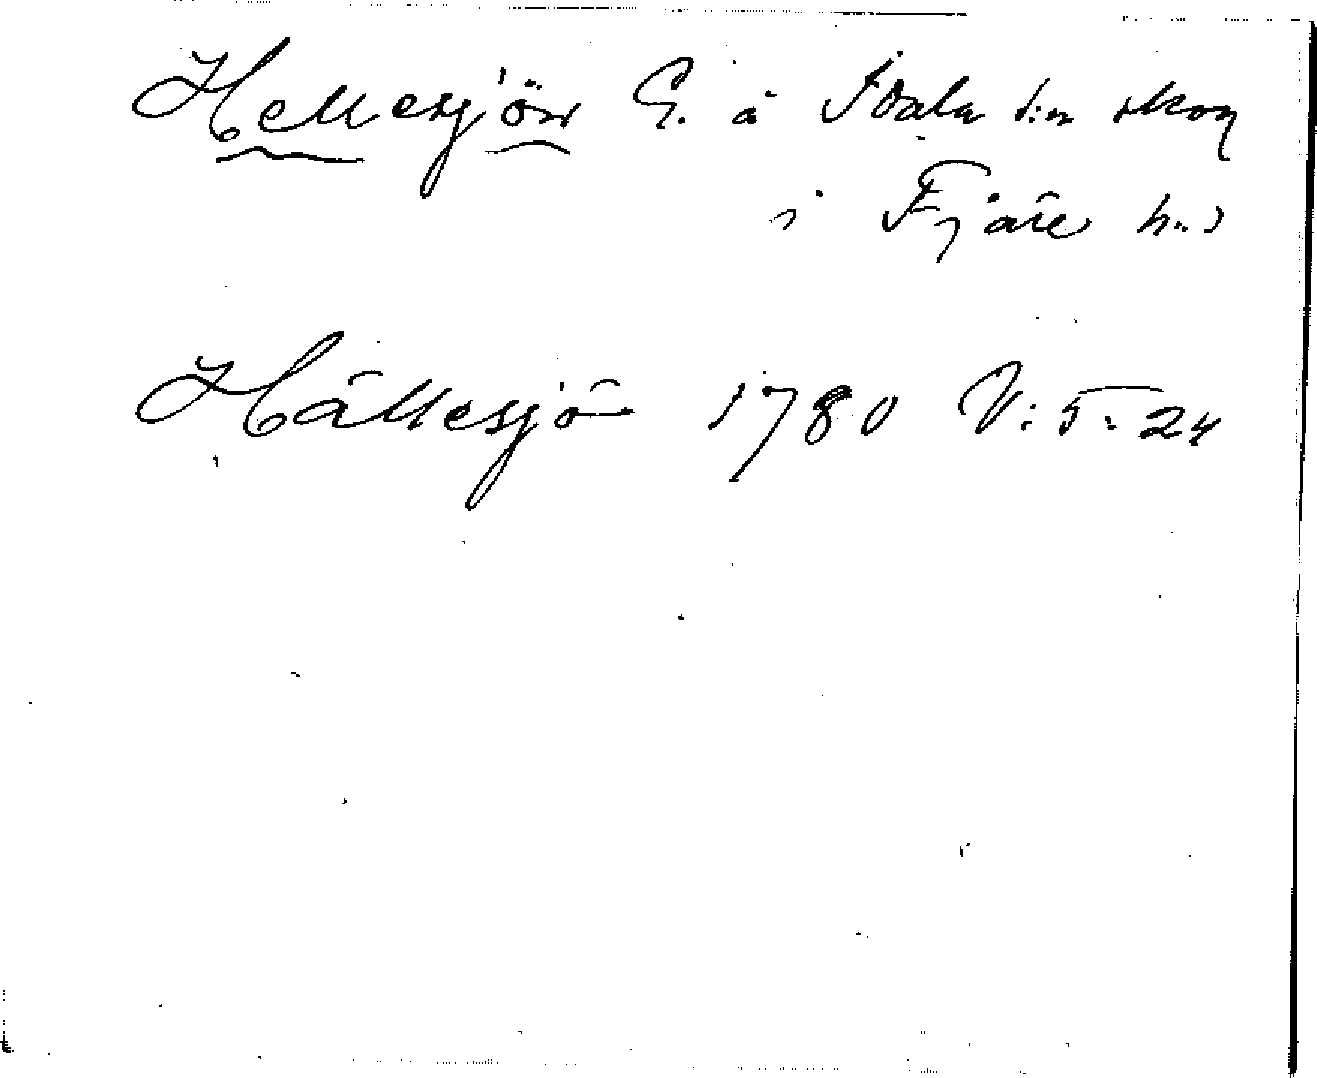 Hellesjön G. å Idala s:n skog
i Fjäre h:d
Hällesjö 1780 V: 5: 24